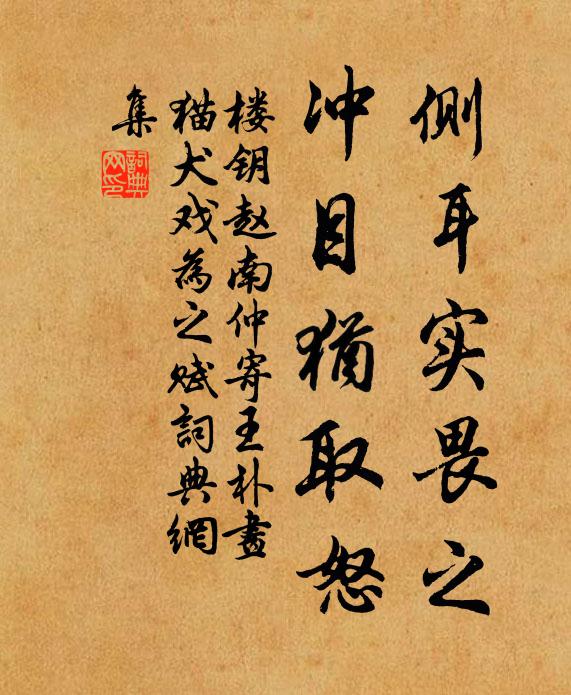 侧耳实畏之
冲目猶取怒
楼钥赵南仲寄王朴畫
猫犬戏為之赋詞典網
集
詞典
网印